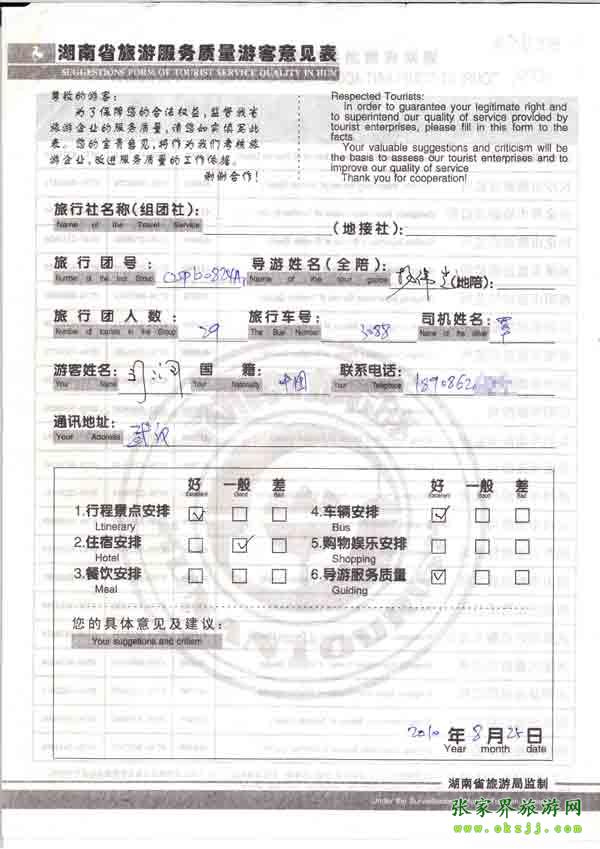 湖南省旅游服务质量游客意见表
SUGGESTIONS FORM OF TOURIST SERVICE QUALITY IN HUN
尊敬的游客:
为了保障您的合法权益,监督我省
旅游企业的服务质量,请您如实填写此
表。您的宝贵意见,将作为我们考核旅
游企业,改进服务质量的工作依据。
谢谢合作!
Respected Tourists:
in order to guarantee your legitimate right and
to superintend our quality of service provided by
tourist enterprises, please fill in this form to the
facts.
Your valuable suggestions and criticism will be
the basis to assess our tourist enterprises and to
improve our quality of service
Thank you for cooperation!
旅行社名称(组团社): (地接社):
Name of the Travel Service
旅行团号: 导游姓名(全陪): (地陪):
Number of the tour Group Name of the tour guide
旅行团人数: 29 旅行车号: 3088 司机姓名: 覃
Number of tourists in the Group The Bus Number Name of the driver
游客姓名: 国籍: 中国 联系电话: 1890862
Your Name Your Nationality Your Telephone
通讯地址: 武汉
Your Address
好 一般 差 好 一般 差
Excellent Good Bad Excellent Good Bad
1.行程景点安排 ✓ 4.车辆安排 ✓
Ltinerary Bus
2.住宿安排 ✓ 5.购物娱乐安排
Hotel Shopping
3.餐饮安排 6.导游服务质量 ✓
Meal Guiding
您的具体意见及建议:
Your suggetions and critism
2010 年 8 月 25 日
Year month date
湖南省旅游局监制
Under the Surveillance
张家界旅游网
www.okzjj.com